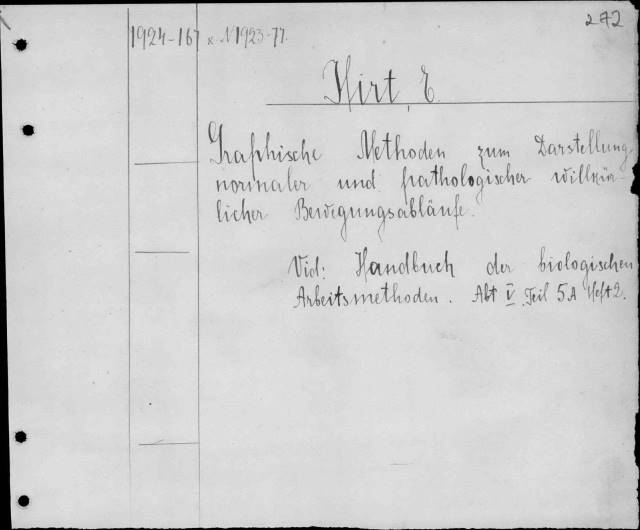 272
1924-167 x N1923-77.
Hirt, E.
Graphische Methoden zum Darstellung
normaler und pathologischer willkür-
licher Bewegungsabläufe.
Vid: Handbuch der biologischen
Arbeitsmethoden. Abt V. Teil 5A Heft 2.